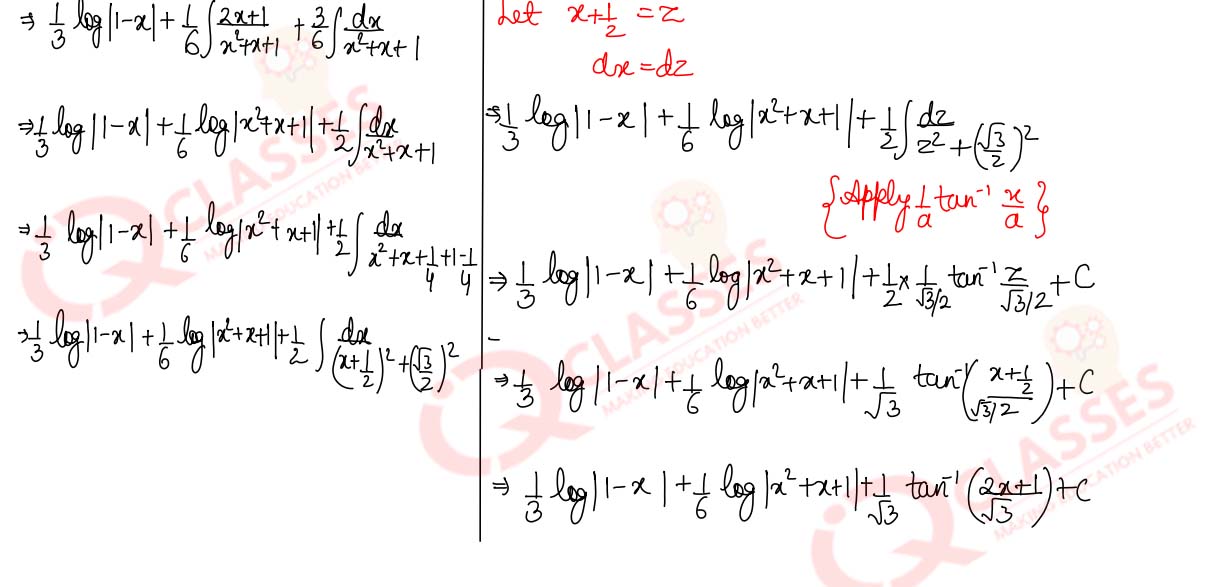 ⇒ 1/3 log|1-x| + 1/6 ∫ (2x+1)/(x²+x+1) + 3/6 ∫ dx/(x²+x+1)
⇒ 1/3 log|1-x| + 1/6 log|x²+x+1| + 1/2 ∫ dx/(x²+x+1)
⇒ 1/3 log|1-x| + 1/6 log|x²+x+1| + 1/2 ∫ dx/(x²+x+1/4+1-1/4)
⇒ 1/3 log|1-x| + 1/6 log|x²+x+1| + 1/2 ∫ dx/((x+1/2)²+(√3/2)²)
Let x+1/2 = z
dx = dz
⇒ 1/3 log|1-x| + 1/6 log|x²+x+1| + 1/2 ∫ dz/(z²+(√3/2)²)
{Apply 1/a tan⁻¹ x/a}
⇒ 1/3 log|1-x| + 1/6 log|x²+x+1| + 1/2 × 1/(√3/2) tan⁻¹ z/(√3/2) + C
⇒ 1/3 log|1-x| + 1/6 log|x²+x+1| + 1/√3 tan⁻¹((x+1/2)/(√3/2)) + C
⇒ 1/3 log|1-x| + 1/6 log|x²+x+1| + 1/√3 tan⁻¹((2x+1)/√3) + C
CLASSES
MAKING EDUCATION BETTER
CLASSES
MAKING EDUCATION BETTER
CLASSES
MAKING EDUCATION BETTER